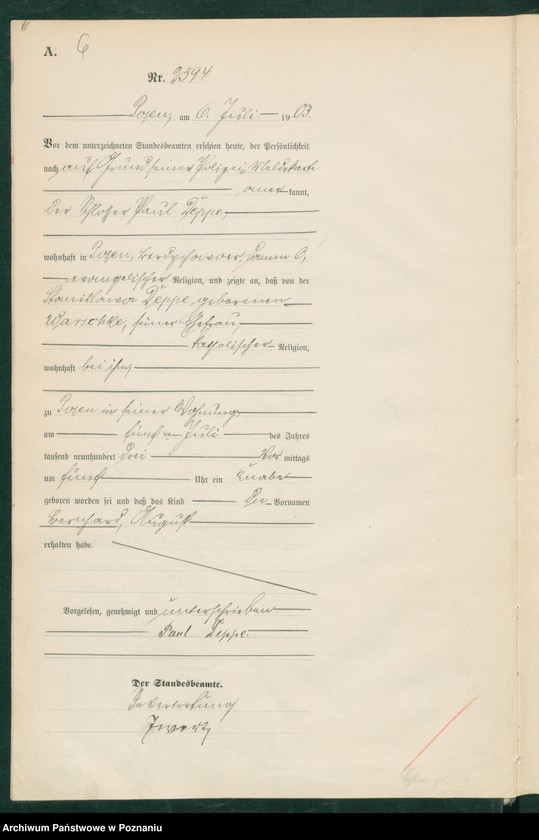 6
A. 6
Nr. 2394
Posen, am 6. Juli 1903.
Vor dem unterzeichneten Standesbeamten erschien heute, der Persönlichkeit
nach auf Grund seiner Polizei Meldekarte
anerkannt,
der Schlosser Paul Deppe,
wohnhaft in Posen,
evangelischer Religion, und zeigte an, daß von der
Stanislawa Deppe geborenen
Warschke, seiner Ehefrau,
katholischer Religion,
wohnhaft bei ihm,
zu Posen in seiner Wohnung,
am fünften Juli des Jahres
tausend neunhundert drei Vormittags
um fünf Uhr ein Knabe
geboren worden sei und daß das Kind die Vornamen
Bernhard, August
erhalten habe.
Vorgelesen, genehmigt und unterschrieben
Paul Deppe.
Der Standesbeamte.
In Vertretung
Archiwum Państwowe w Poznaniu